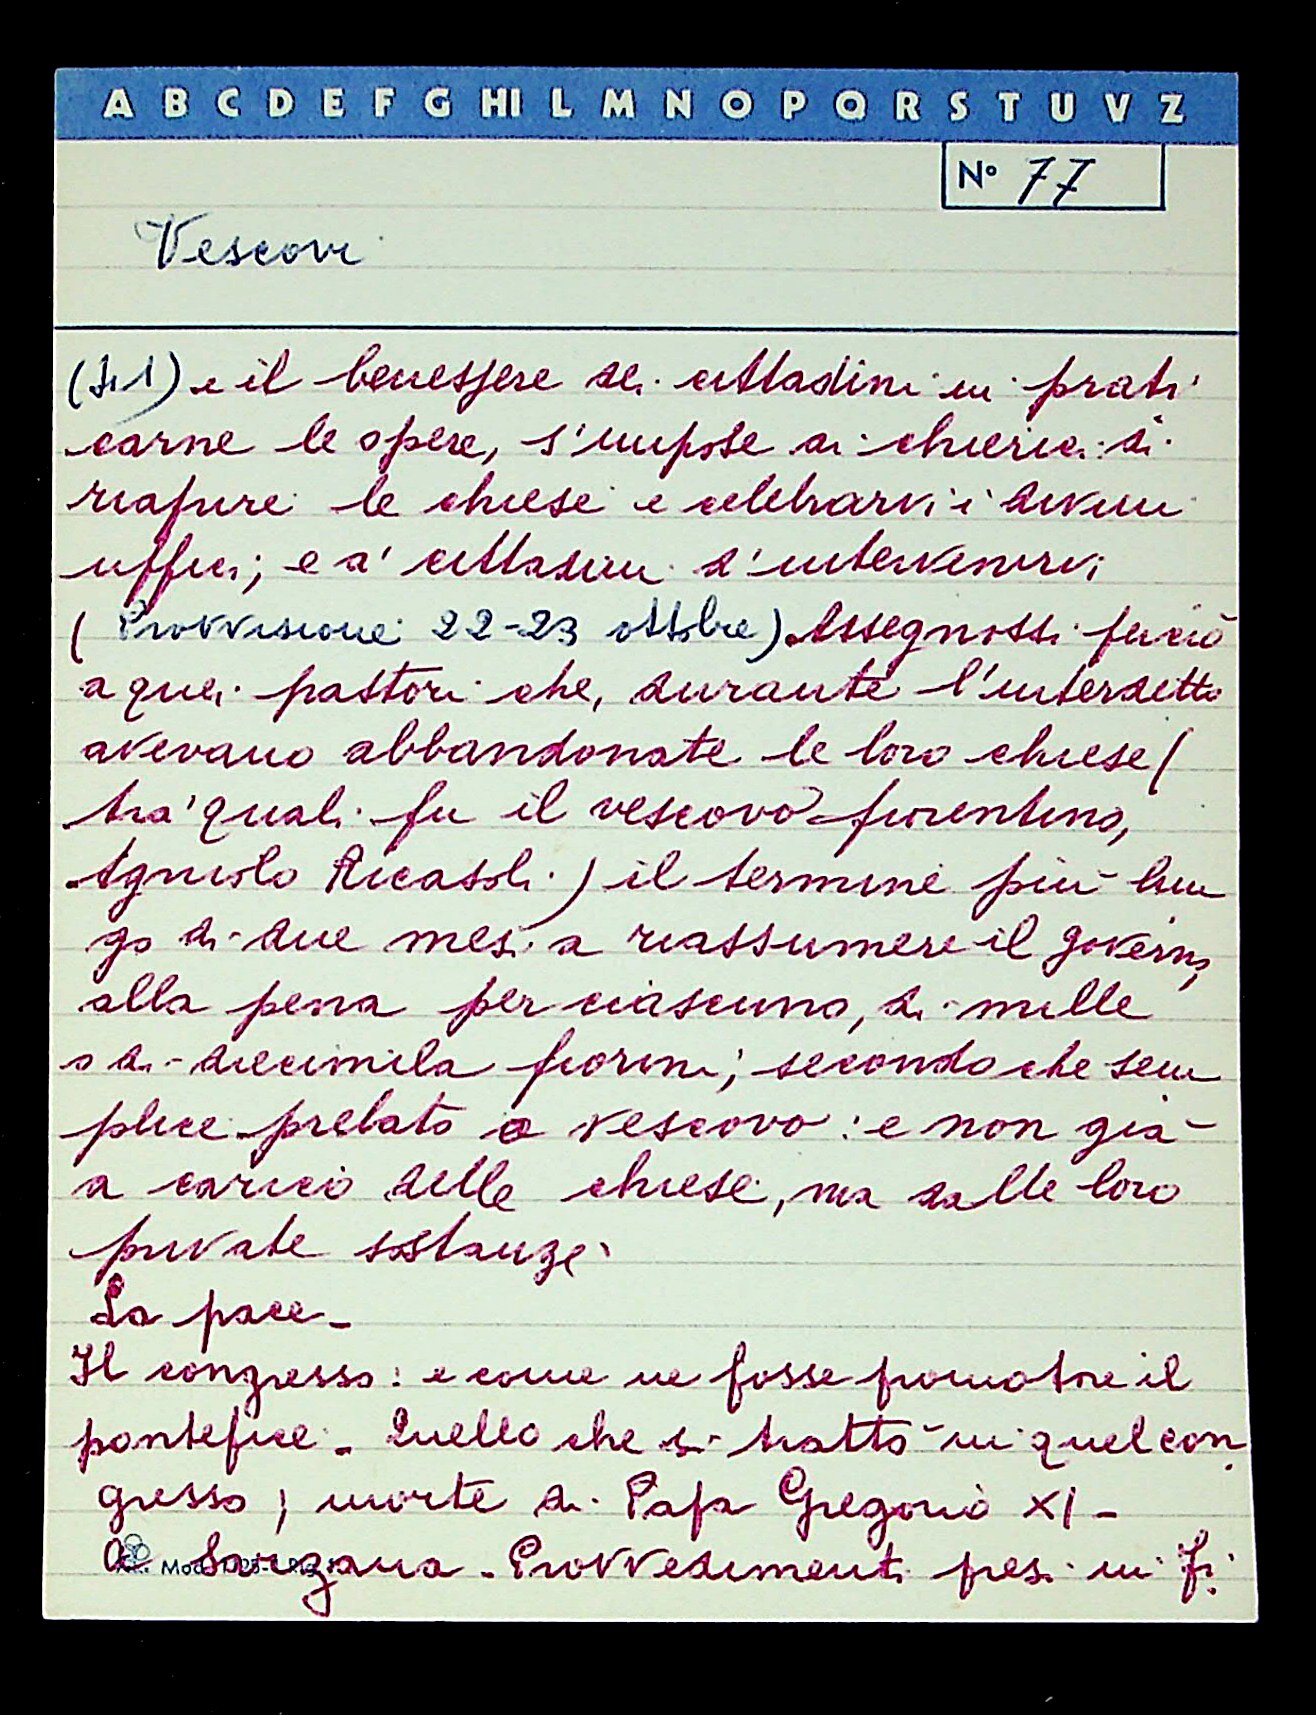 A B C D E F G HI L M N O P Q R S T U V Z
N° 77
Vescovi
e il benessere dei cittadini in prati
carne le opere, s'impose ai chierici di
riaprire le chiese e celebrarvi i divini
uffici; e a' cittadini d'intervenirvi
(Provvisione 22-23 ottobre). Assegnossi perciò
a quei pastori che, durante l'interdetto
avevano abbandonate le loro chiese (
tra' quali fu il vescovo fiorentino,
Agniolo Ricasoli) il termine più lun
go di due mesi a riassumere il governo,
alla pena per ciascuno, di mille
o di diecimila fiorini; secondo che sem
plice prelato o vescovo: e non già
a carico delle chiese, ma dalle loro
private sostanze
La pace -
Il congresso: e come ne fosse promotore il
pontefice. Quello che si trattò in quel con
gresso; morte di Papa Gregorio XI -
Sarzana - Provvedimenti presi in Fi